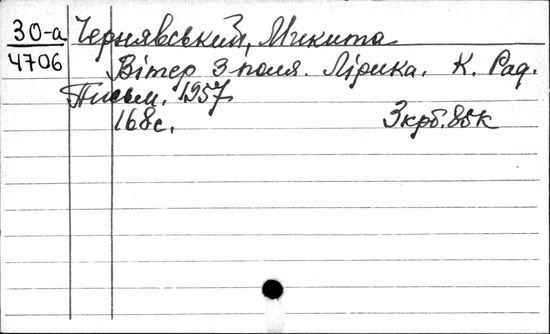 30-а Чернявський, Микита
4706
Вітер з поля. Лірика. К. Рад.
Письм. 1957
168с. 3крб.85к